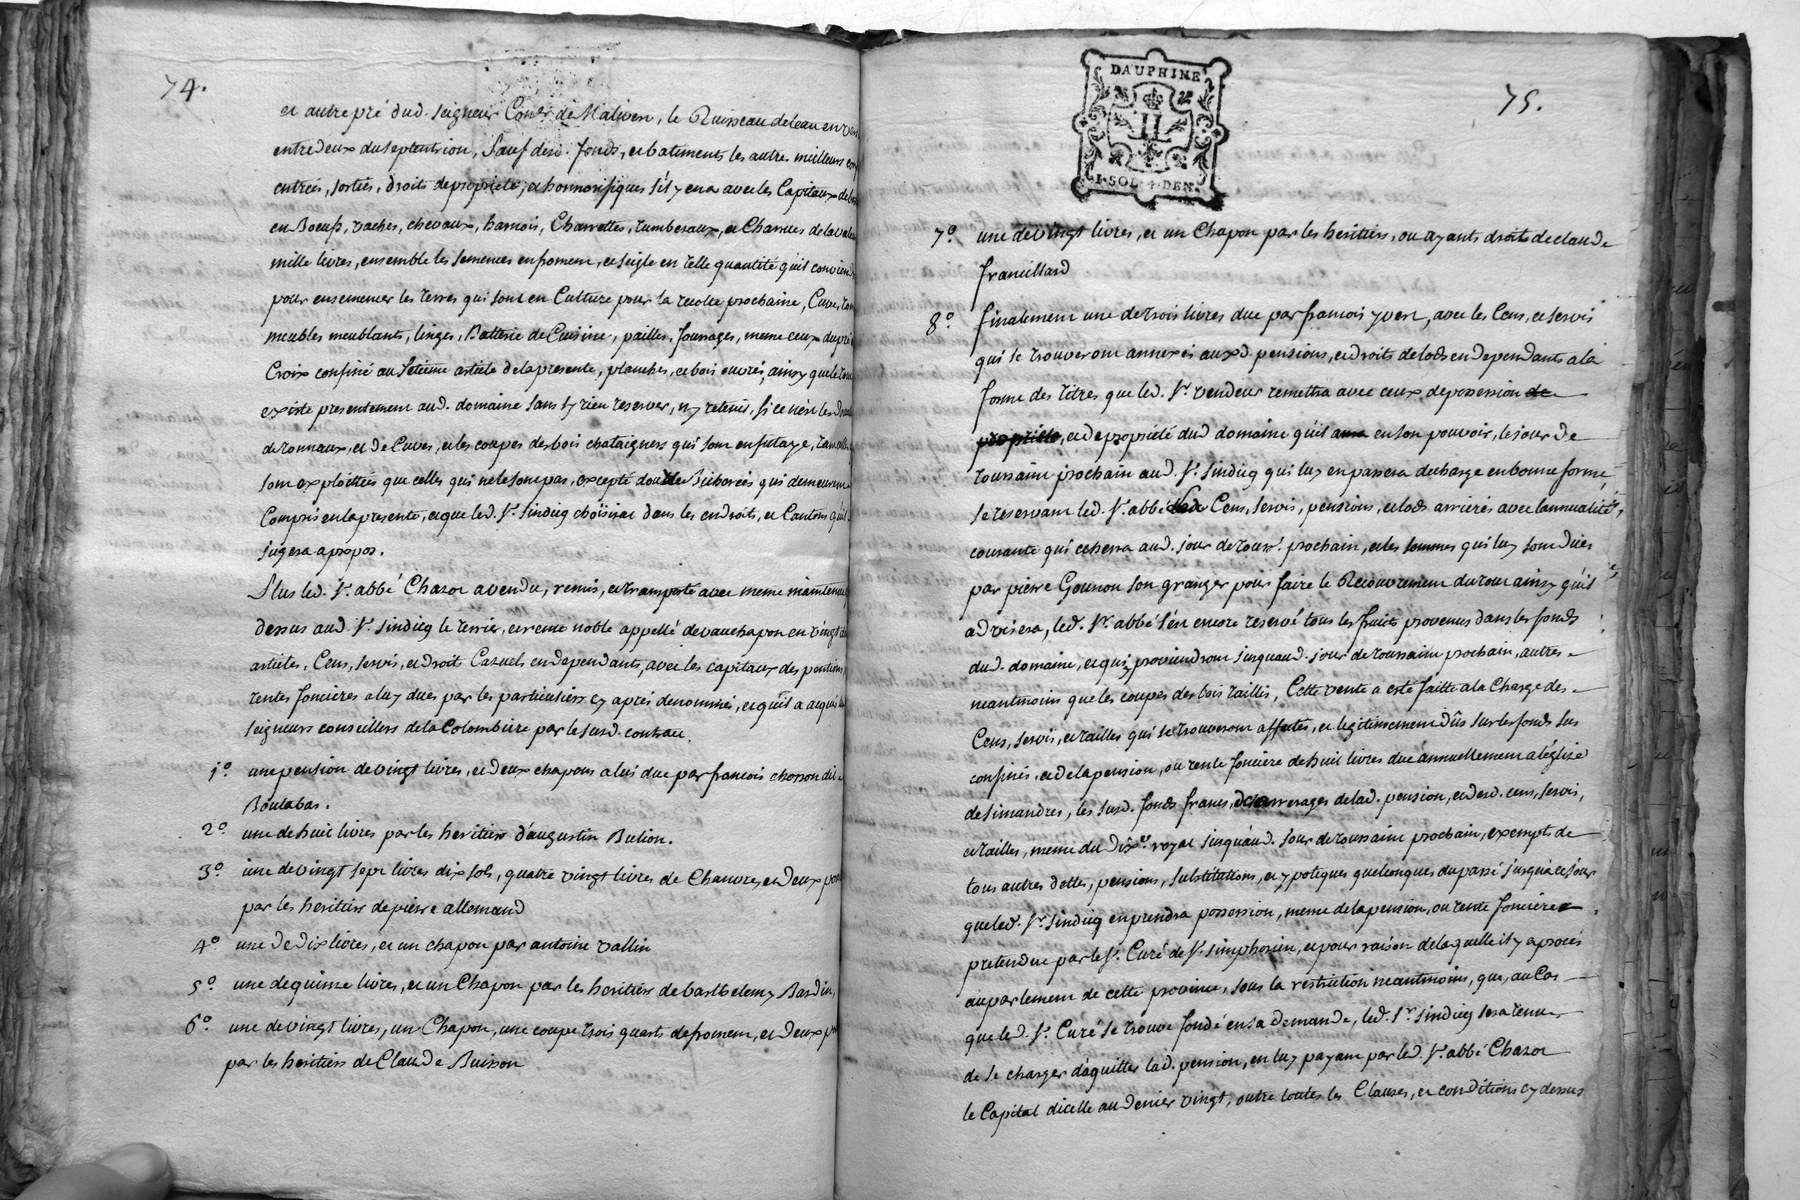 74.
et autre pré dud. seigneur Conte de Maliven, le Ruisseau deleau en
entre deux du septention, Sauf desd. fonds, et batiments les autres meilleurs
entrées, sorties, droits de propriété, et honnorifiques s'il y en a avec les Capitaux
en Boeufs, vaches, chevaux, harnois, Charrettes, tumberaux, et Charrues de la
mille livres, ensemble les semences en froment, et seigle en telle quantité qu'il
pour ensemencer les terres qui sont en Culture pour la recolte prochaine, Cuves,
meubles meublants, linges, Batterie de Cuisine, pailles, fourrages, meme ceux du pré
Croix confiné au Setieme article de la presente, planches, et bois ouvrés, ainsy que le tout
existe presentement aud. domaine sans y rien reserver, ny retenir, si ce n'est les
de tonneaux, et de Cuves, et les coupes des bois chataigners qui sont en futaye,
sont exploittées que celles qui ne le sont pas, excepté douze Bichorées qui demeurent
Compris en la presente, et que led. Sr. sindicq choisira dans les endroits, et Cantons qu'il
jugera a propos.
Plus led. Sr. abbé Chazot a vendu, remis, et transporté avec meme maintenue
dessus aud. Sr. sindicq le terrier, et rente noble appellé de vauchapon en vingt
articles, Cens, servis, et droit Cazuels en dependants, avec les capitaux des pentions
rentes foncières a luy dues par les particuliers cy aprés denommés, et qu'il a acquis
seigneurs conseillers de la Colombiere par le susd. contrac.
1°. une pension de vingt livres, et deux chapons a lui due par francois chosson dit
Boulabas.
2°. une de huit livres par les heritiers d'augustin Bulion.
3°. une de vingt sept livres dix sols, quatre vingt livres de Chanvre, et deux
par les heritiers de pierre allemand
4°. une de dix livres, et un chapon par antoine vallin
5°. une de quinze livres, et un Chapon par les heritiers de barthelemy Bardin,
6°. une de vingt livres, un Chapon, une coupe trois quarts de froment, et deux
par les heritiers de Claude Buisson
DAUPHINE
1. SOL. 4. DEN.
75.
7°. une de vingt livres, et un Chapon par les heritiers, ou ayants droits de claude
francillard
8°. finalement une de trois livres due par francois yvert, avec les Cens, et servis
qui se trouveront annexés auxd. pensions, et droits de lods en dependants a la
forme des titres que led. Sr. vendeur remettra avec ceux de possession de
propriété, et de propriété dud. domaine qu'il a en son pouvoir, le jour de
toussaint prochain aud. Sr. sindicq qui luy en passera decharge en bonne forme
se reservant led. Sr. abbé Cens, servis, pensions, et lods arrierés avec l'annualité,
courante qui echerra aud. jour de touss. prochain, et les sommes qui luy sont dues
par pierre Gounon son granger pour faire le Recouvrement du tout ainsy qu'il
advisera, led. Sr. abbé s'est encore reservé tous les fruits provenus dans les fonds
dud. domaine, et qui proviendront jusquaud. jour de toussaint prochain, autres
neantmoins que les coupes des bois taillis, Cette vente a esté faitte a la Charge des
Cens, servis, et tailles qui se trouveront affectés, et legitimement dûs sur les fonds sus
confinés, et de la pension, ou rente fonciere de huit livres due annuellement a l'eglise
de simandres, les susd. fonds francs, des arrerages de lad. pension, et desd. cens, servis,
et tailles, meme du dixe. royal jusqu'aud. jour de toussaint prochain, exempt de
tous autres dettes, pensions, substitutions, et ypoteques quelconques du passé jusqu'a ce jour
que led. Sr. sindicq en prendra possession, meme de la pension, ou rente fonciere
pretendue par le Sr. Curé de St. simphorien, et pour raison de laquelle il y a procés
au parlement de cette province, sous la restriction neantmoins, que, au Cas
que led. Sr. Curé se trouve fondé en sa demande, led. Sr. sindicq sera tenu
de se charger d'aquitter lad. pension, en luy payant par led. Sr. abbé Chazot
le Capital dicelle au denier vingt, outre toutes les Clauses, et conditions cy dessus